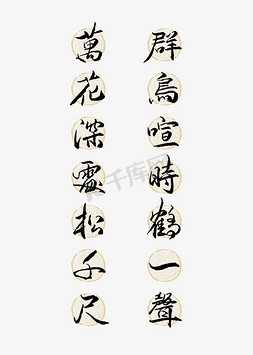 群鳥喧時鶴一聲
萬花深處松千尺
千库网